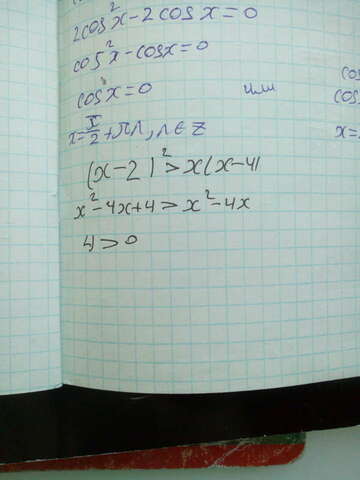 2cos²x-2cosx=0
cos²x-cosx=0
cosx=0 или
x=π/2+πn, n∈Z
(x-2)²>x(x-4)
x²-4x+4>x²-4x
4>0
cos
x=